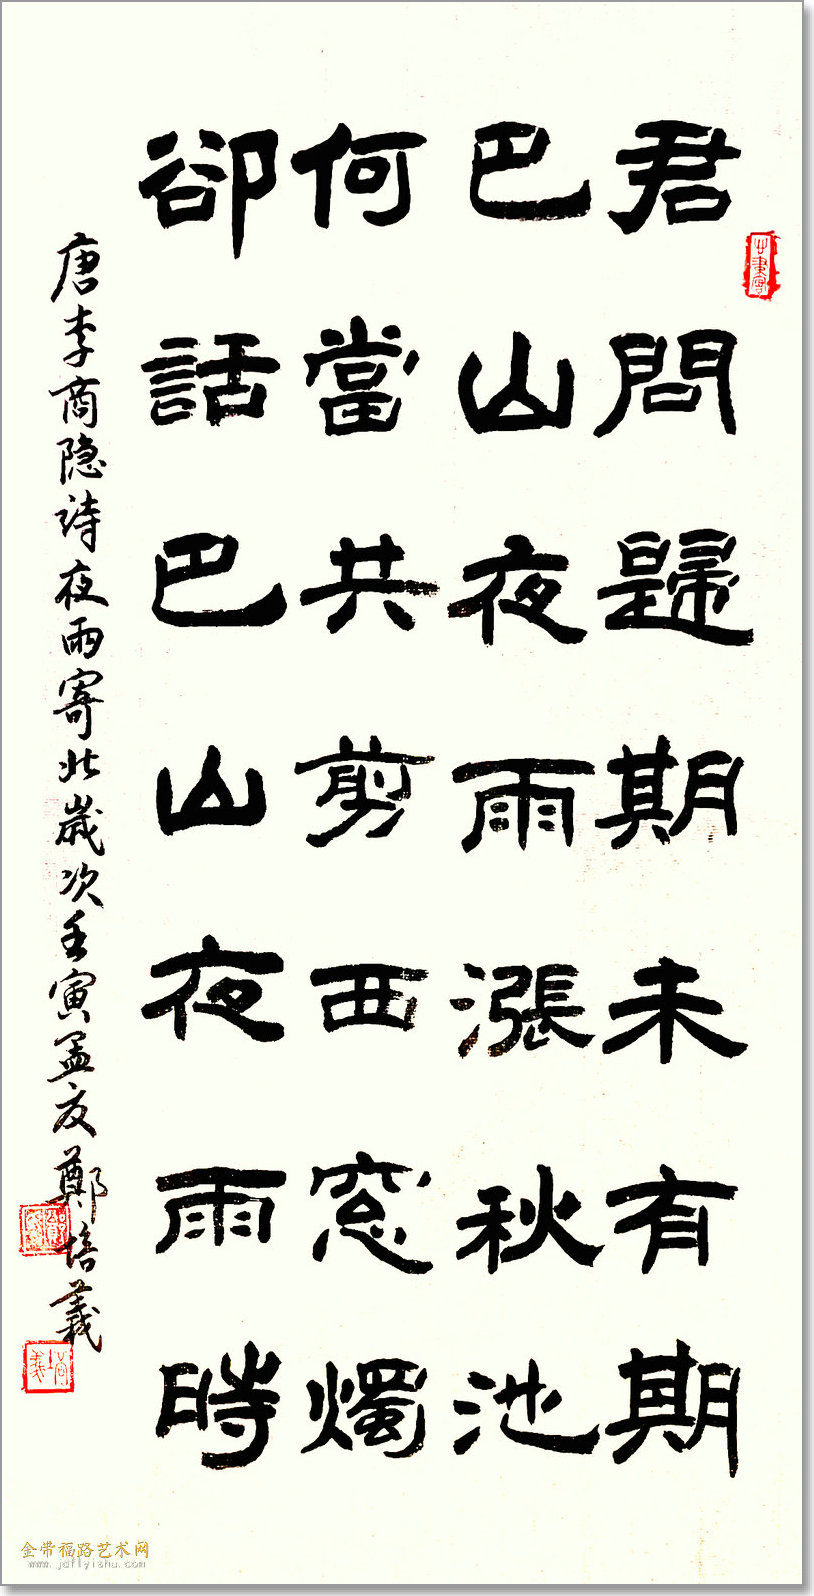 君問歸期未有期
巴山夜雨漲秋池
何當共剪西窓燭
卻話巴山夜雨時
唐李商隐詩夜雨寄北歲次壬寅孟夏鄭培義
培義
金带福路艺术网
www.jdflyishu.com